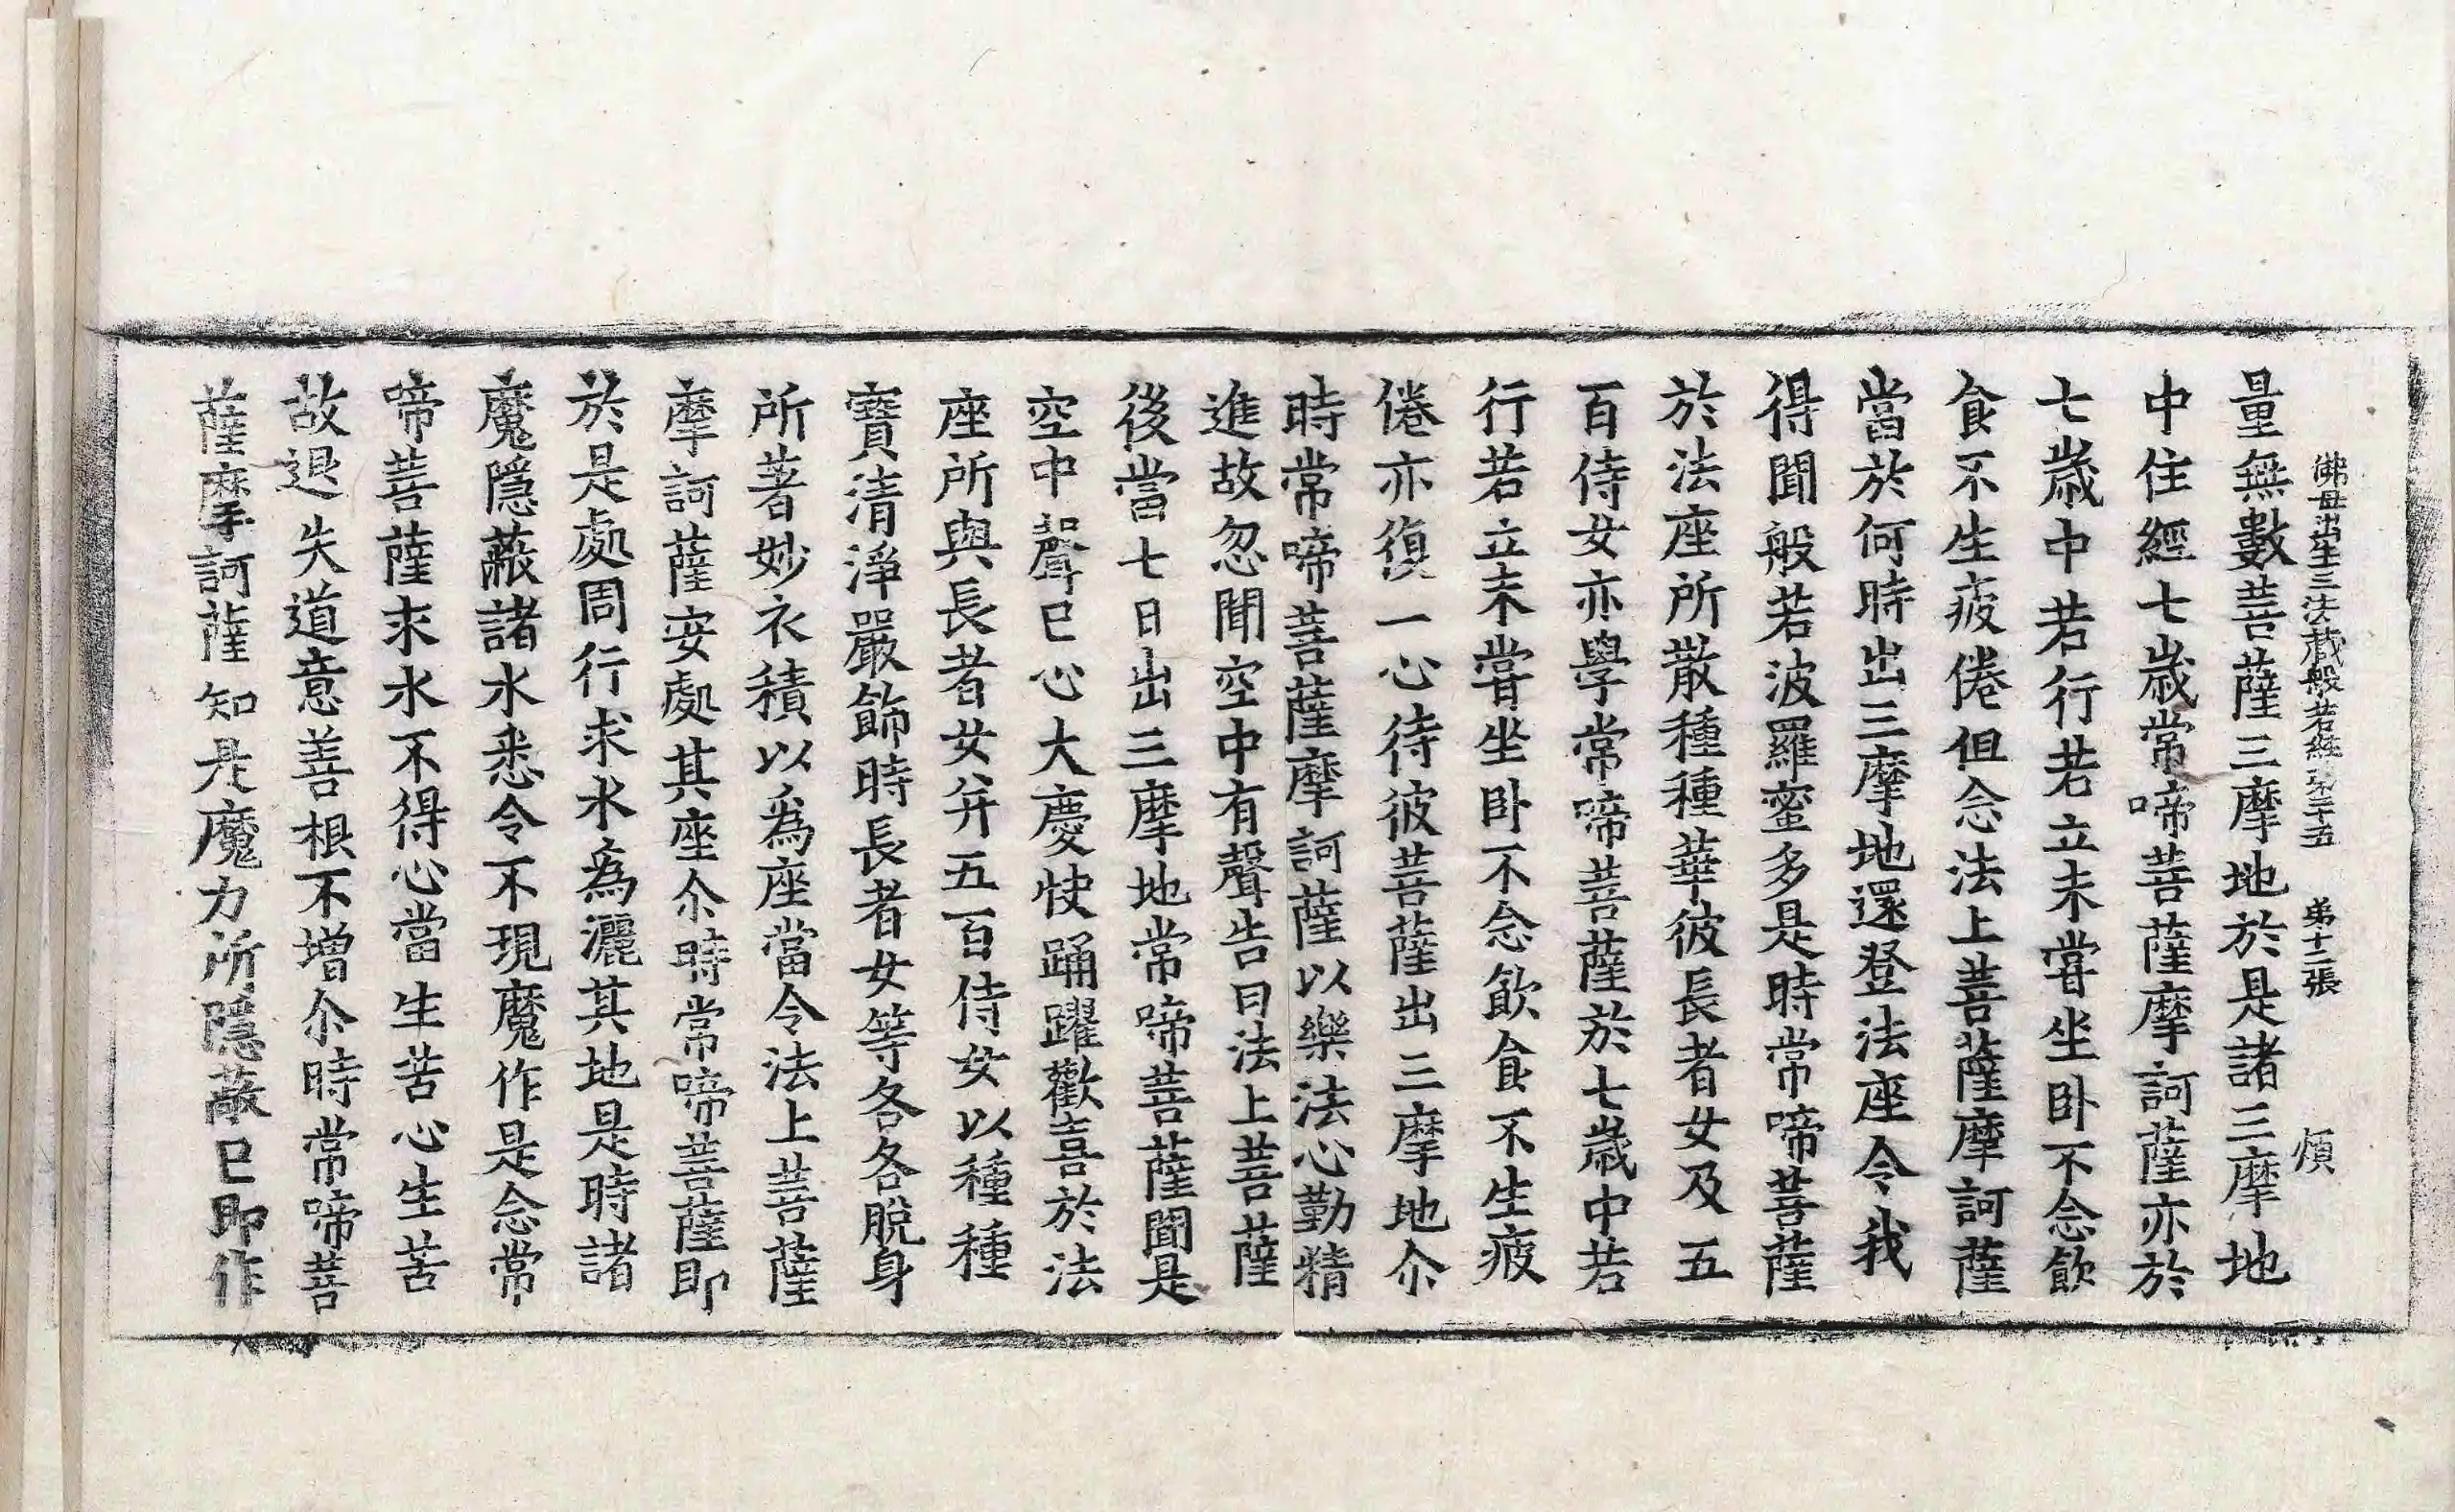 佛母出生三法藏般若經第二十五 第十二張 煩
量無數菩薩三摩地於是諸三摩地
中住經七歲常啼菩薩摩訶薩亦於
七歲中若行若立未甞坐卧不念飲
食不生疲倦但念法上菩薩摩訶薩
當於何時出三摩地還登法座令我
得聞般若波羅蜜多是時常啼菩薩
於法座所散種種華彼長者女及五
百侍女亦學常啼菩薩於七歲中若
行若立未甞坐卧不念飲食不生疲
倦亦復一心待彼菩薩出三摩地尒
時常啼菩薩摩訶薩以樂法心勤精
進故忽聞空中有聲告曰法上菩薩
後當七日出三摩地常啼菩薩聞是
空中聲已心大慶快踊躍歡喜於法
座所與長者女并五百侍女以種種
寶清淨嚴飾時長者女等各各脫身
所著妙衣積以爲座當令法上菩薩
摩訶薩安處其座尒時常啼菩薩即
於是處周行求水為灑其地是時諸
魔隱蔽諸水悉令不現魔作是念常
啼菩薩求水不得心當生苦心生苦
故退失道意善根不增尒時常啼菩
薩摩訶薩知是魔力所隱蔽已即作